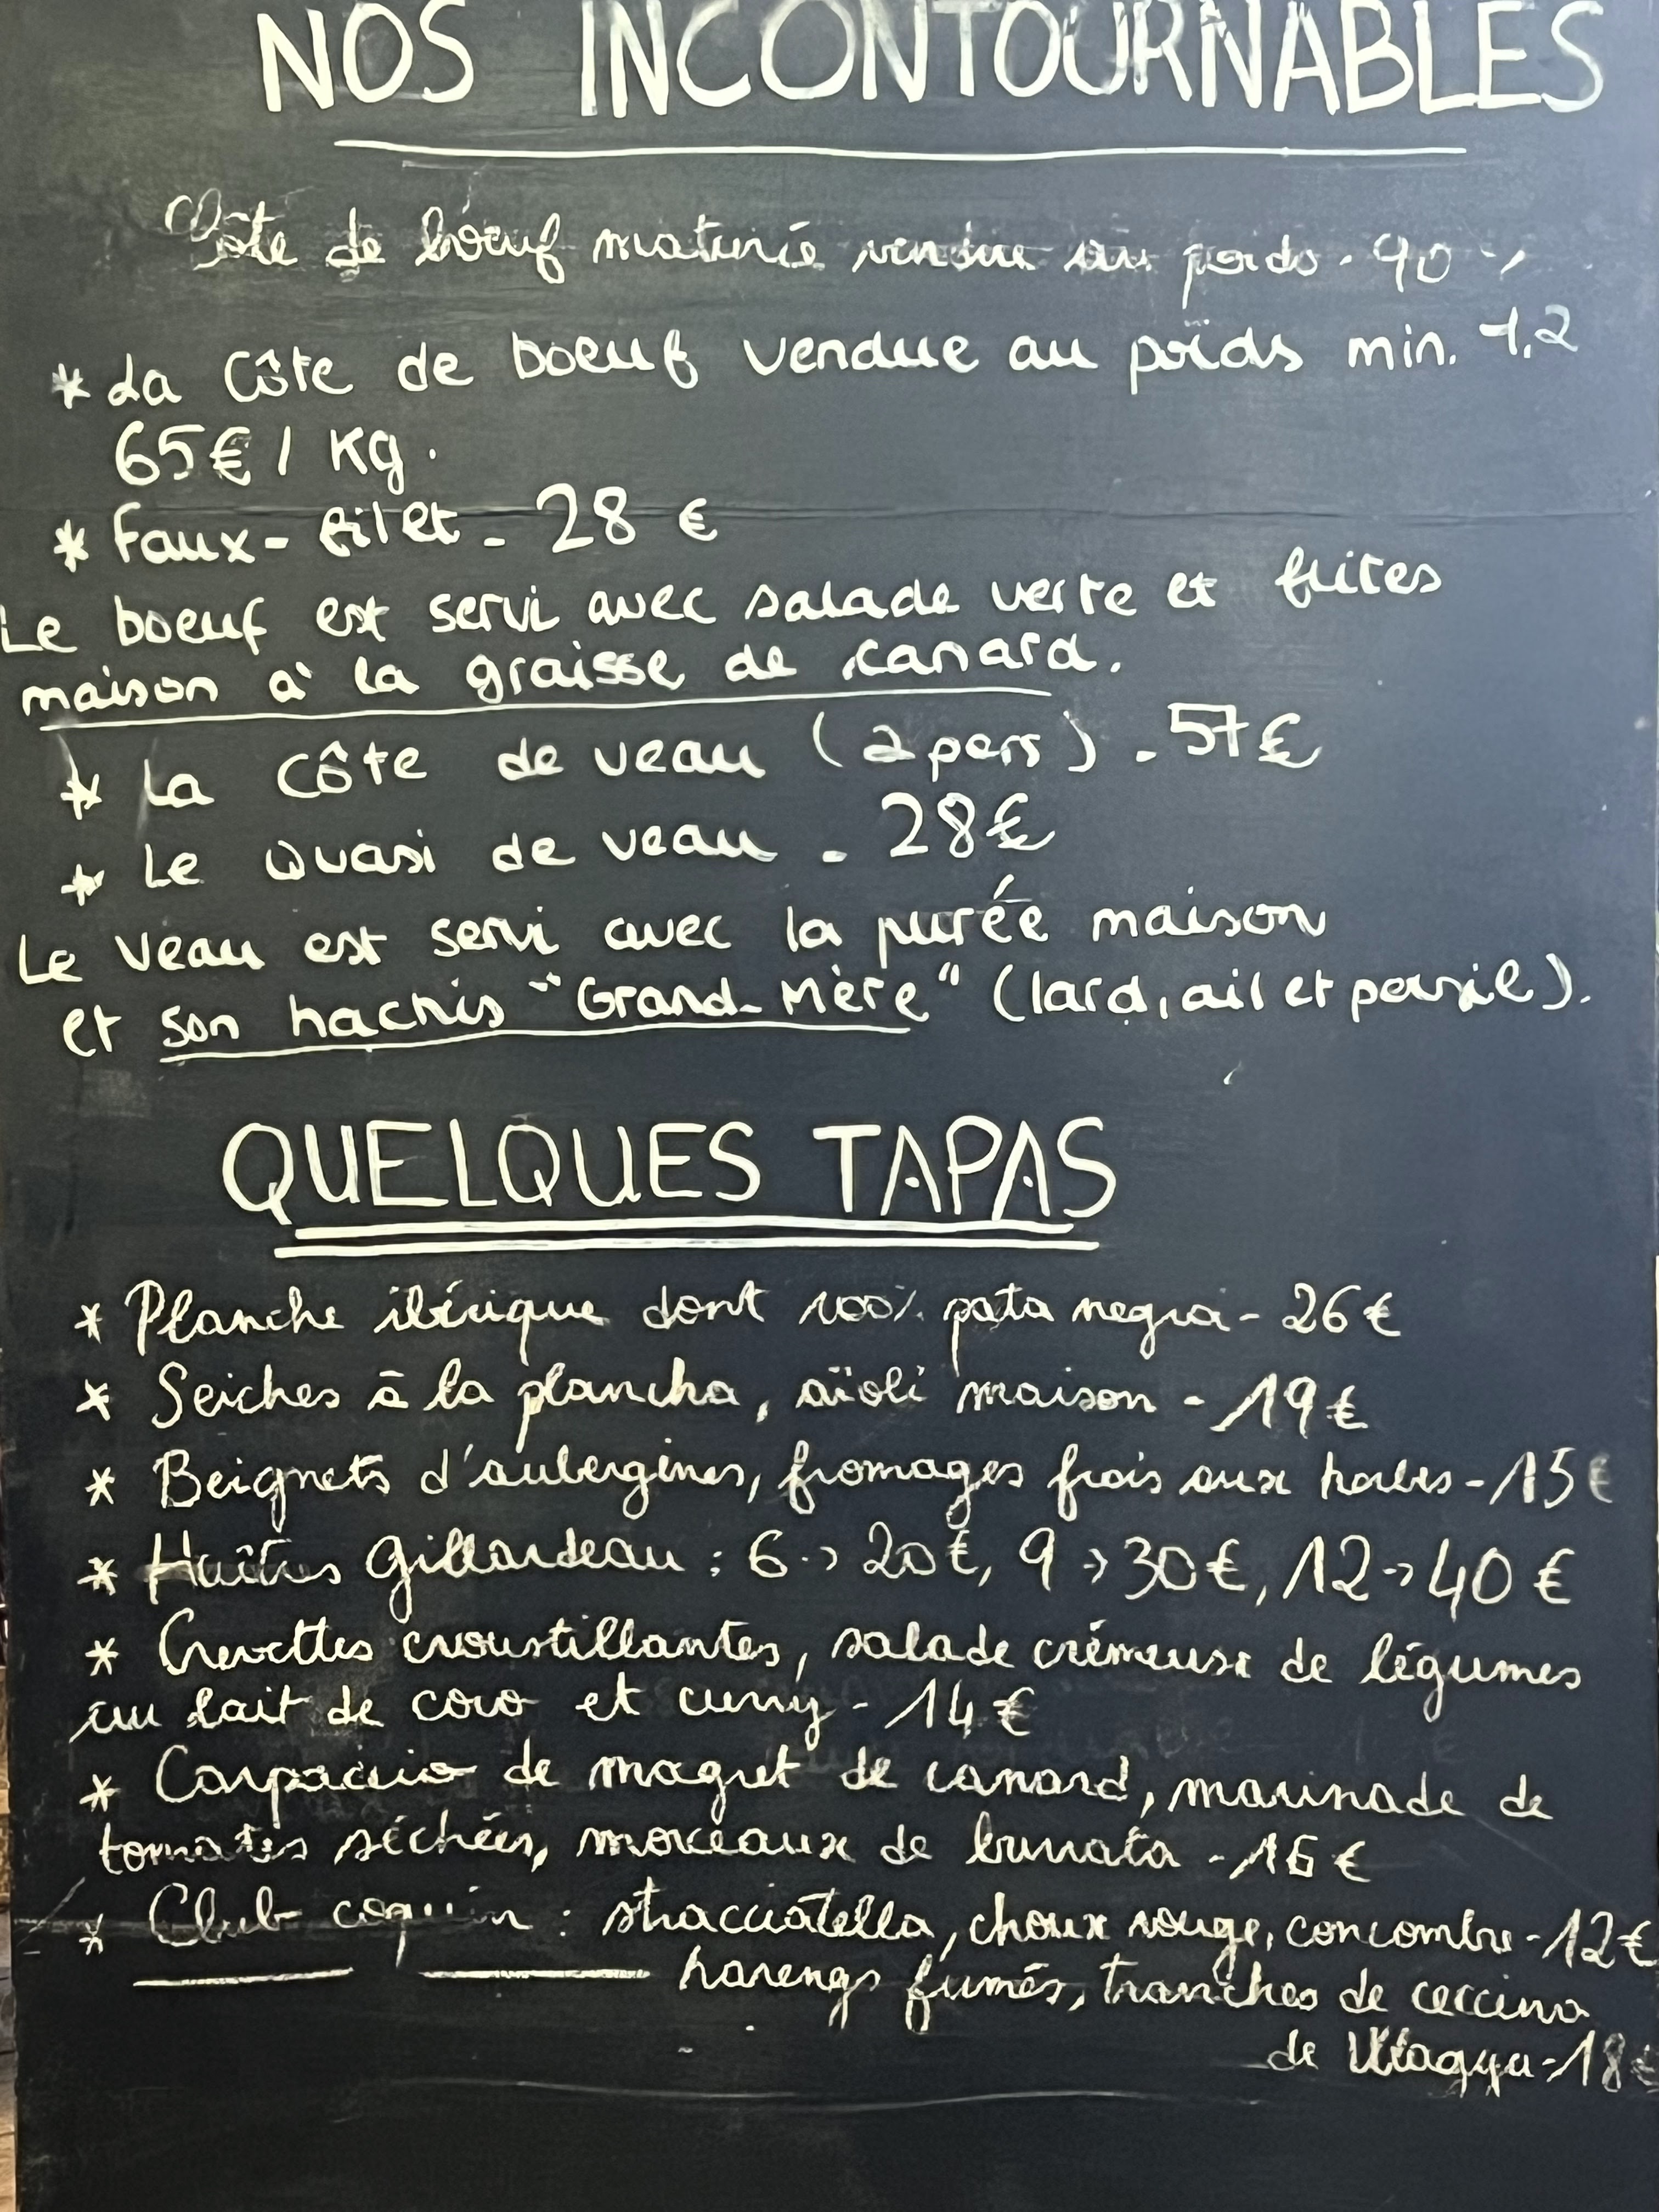 NOS INCONTOURNABLES
Côte de bœuf maturée vendue au poids - 90
* La Côte de boeuf vendue au poids min. 1,2
65€ / Kg.
* Faux-filet - 28 €
Le boeuf est servi avec salade verte et frites
maison à la graisse de canard.
* La Côte de veau (2 pers) - 57€
* Le Quasi de veau - 28€
Le veau est servi avec la purée maison
et son hachis "Grand-Mère" (lard, ail et persil).
QUELQUES TAPAS
* Planche ibérique dont 100% pata negra - 26€
* Seiches à la plancha, aïoli maison - 19€
* Beignets d'aubergines, fromages frais aux herbes - 15€
* Huîtres Gillardeau : 6 -> 20€, 9 -> 30€, 12 -> 40€
* Crevettes croustillantes, salade crémeuse de légumes
au lait de coco et curry - 14€
* Carpaccio de magret de canard, marinade de
tomates séchées, morceaux de burrata - 16€
* Club coquin : stracciatella, choux rouge, concombre - 12€
harengs fumés, tranches de ceccina
de Wagyu - 18€